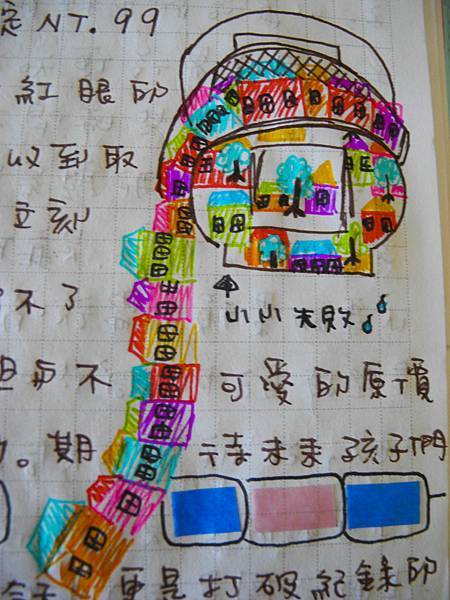 定 NT. 99
紅眼的
收到取
立刻
不了
小小失敗
但每不 可愛的原價
。期 待未來孩子們
更是打破紀錄的